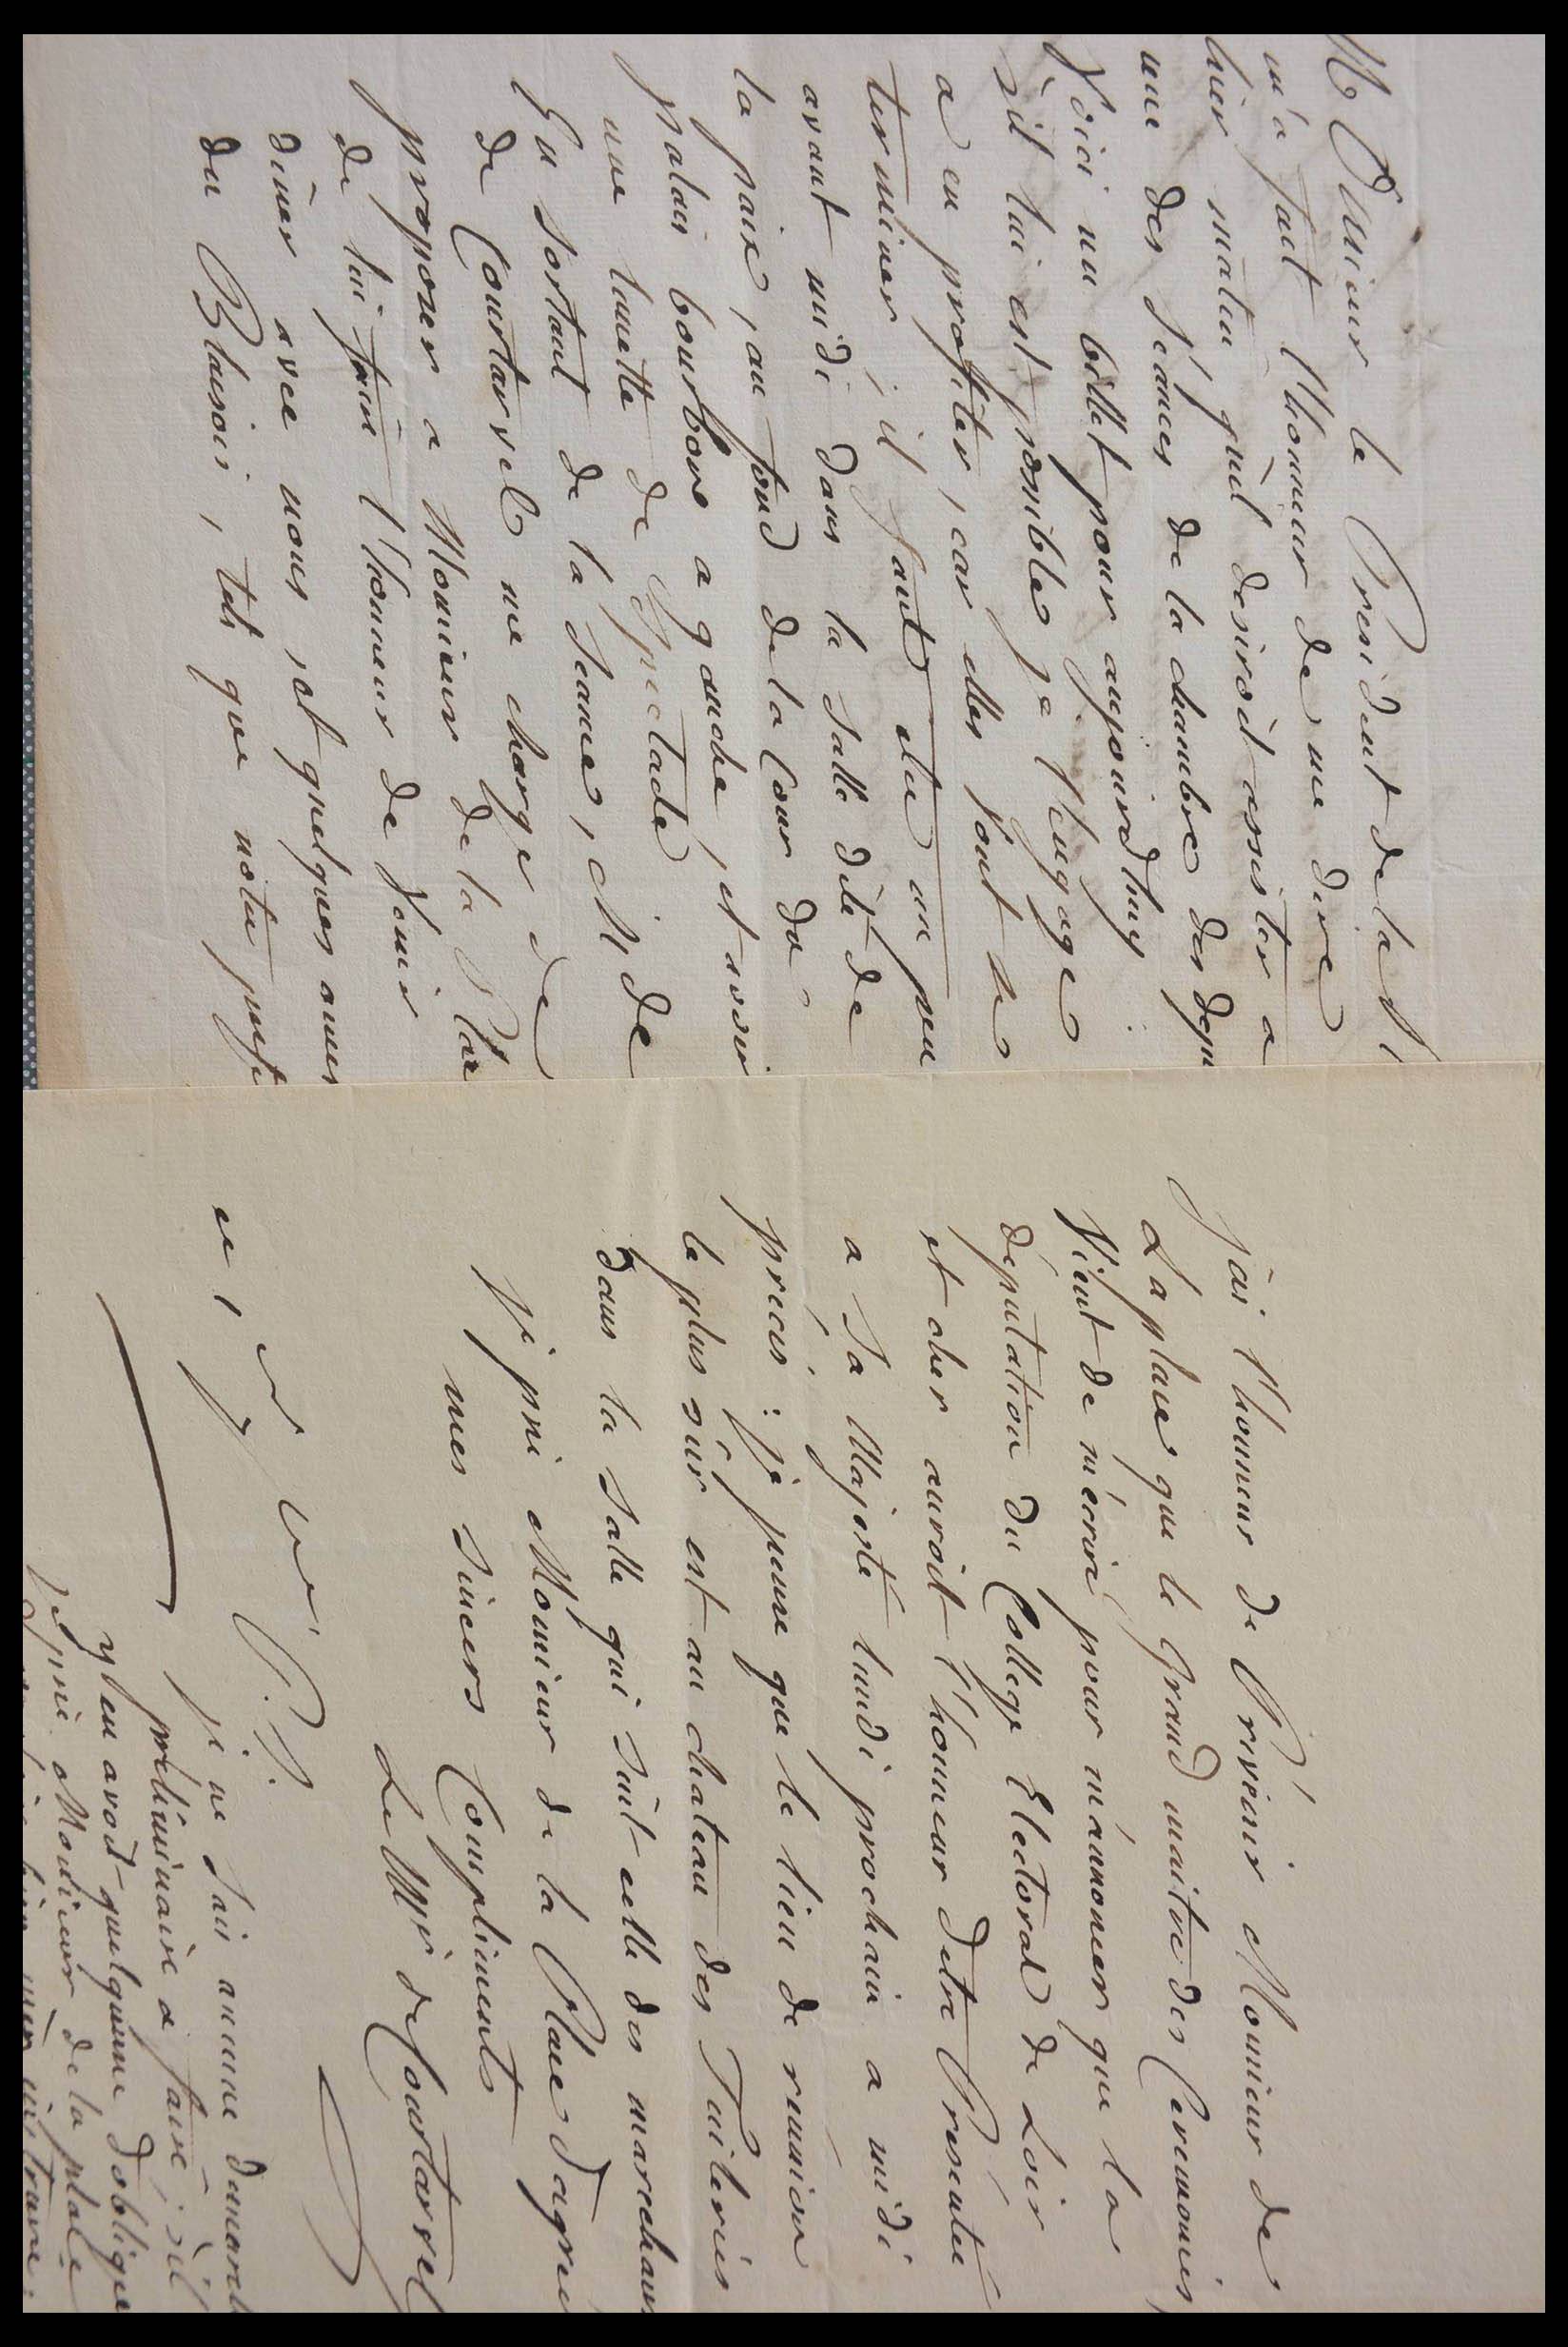 Monsieur le President de la P
m'a fait l'honneur de me dire
hier matin qu'il desiroit assister a
une des séances de la chambre des dépu
Voici un billet pour aujourdhuy
s'il lui est possible je l'engage
a en profiter, car elles sont se
terminer; il faut etre un peu
avant midi dans la salle dite de
la paix, au fond de la Cour du
palais bourbon a gauche, et avoir
une lunette de spectacle
En sortant de la seance, M, de
de Courtarvel me charge de
proposer a Monsieur de la Place
de lui faire l'honneur de venir
diner avec nous, et quelques amis
du Blaisois, tels que notre prefe
J'ai l'honneur de Prévenir Monsieur de
Laplace que le Grand maitre des Ceremonies
Vient de m'écrire pour m'annoncer que la
députation du College Electoral de Loir
et cher auroit l'honneur d'etre Presentée
a Sa Majesté lundi prochain a midi
précis : je pense que le lieu de reunion
le plus sûr est au chateau des Tuileries
dans la salle qui suit celle des marechaux
je prie Monsieur de la Place d'agréer
mes sincers Compliments
Le Mis de Courtarvel
P.S. je ne sais aucune demarch
préliminaire a faire; s'il
y en avoit quelqu'une d'obligée
je prie Monsieur de la place